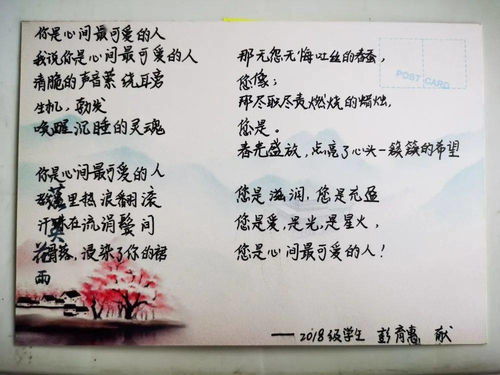 你是心间最可爱的人
我说你是心间最可爱的人
清脆的声音萦绕耳旁
生机，勃发
唤醒沉睡的灵魂
你是心间最可爱的人
里热浪翻滚
汗 在流淌鬓间
花 落，浸染了你的裙
雨
POST CARD
那无怨无悔吐丝的春蚕，
您像；
那尽职尽责燃烧的蜡烛，
您是。
春光盛放，点亮了心头一簇簇的希望
您是滋润，您是充盈
您是爱，是光，是星火，
您是心间最可爱的人！
——2018级学生 彭育惠 献